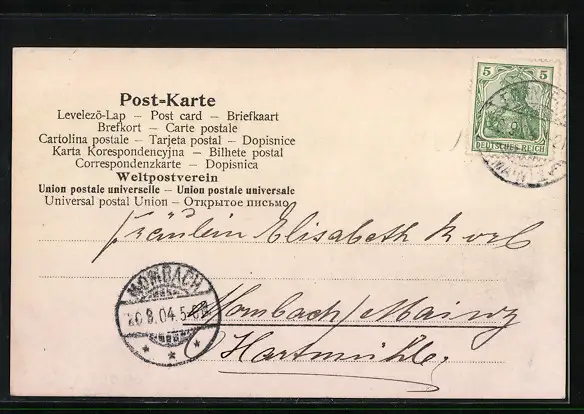 Post=Karte
Levelezö-Lap – Post card – Briefkaart
Brefkort – Carte postale
Cartolina postale – Tarjeta postal – Dopisnice
Karta Korespondencyjna – Bilhete postal
Correspondenzkarte – Dopisnica
Weltpostverein
Union postale universelle – Union postale universale
Universal postal Union – Открытое письмо
5 5
DEUTSCHES REICH
Fräulein Elisabeth
MOMBACH
Mombach/Mainz
Hartmühle.